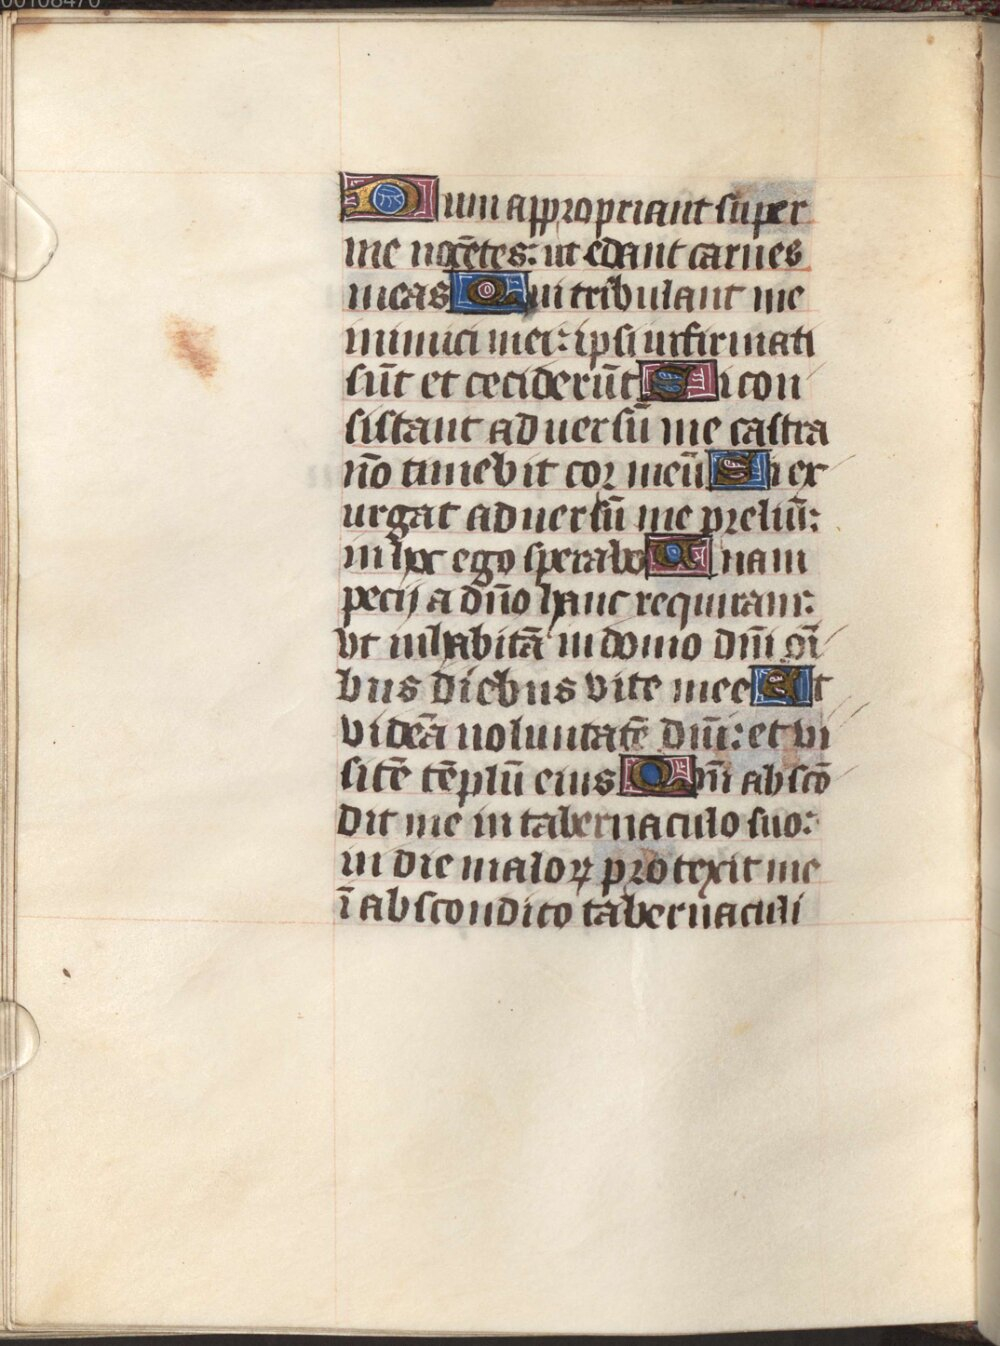 Dum appropriant super
me nocētes: ut edant carnes
meas Qui tribulant me
inimici mei: ipsi infirmati
sūt et ceciderūt Si con
sistant adversū me castra
nō timebit cor meū Si ex
urgat adversū me preliū:
in hoc ego sperabo Unam
pecij a dn̄o hanc requiram:
vt inhabitā in domo dn̄i oī
bus diebus vite mee Et
videā voluntatē dn̄i: et vi
sitē tēplū eius Qm̄ abscō
dit me in tabernaculo suo:
in die maloꝝ protexit me
ī abscondito tabernaculi